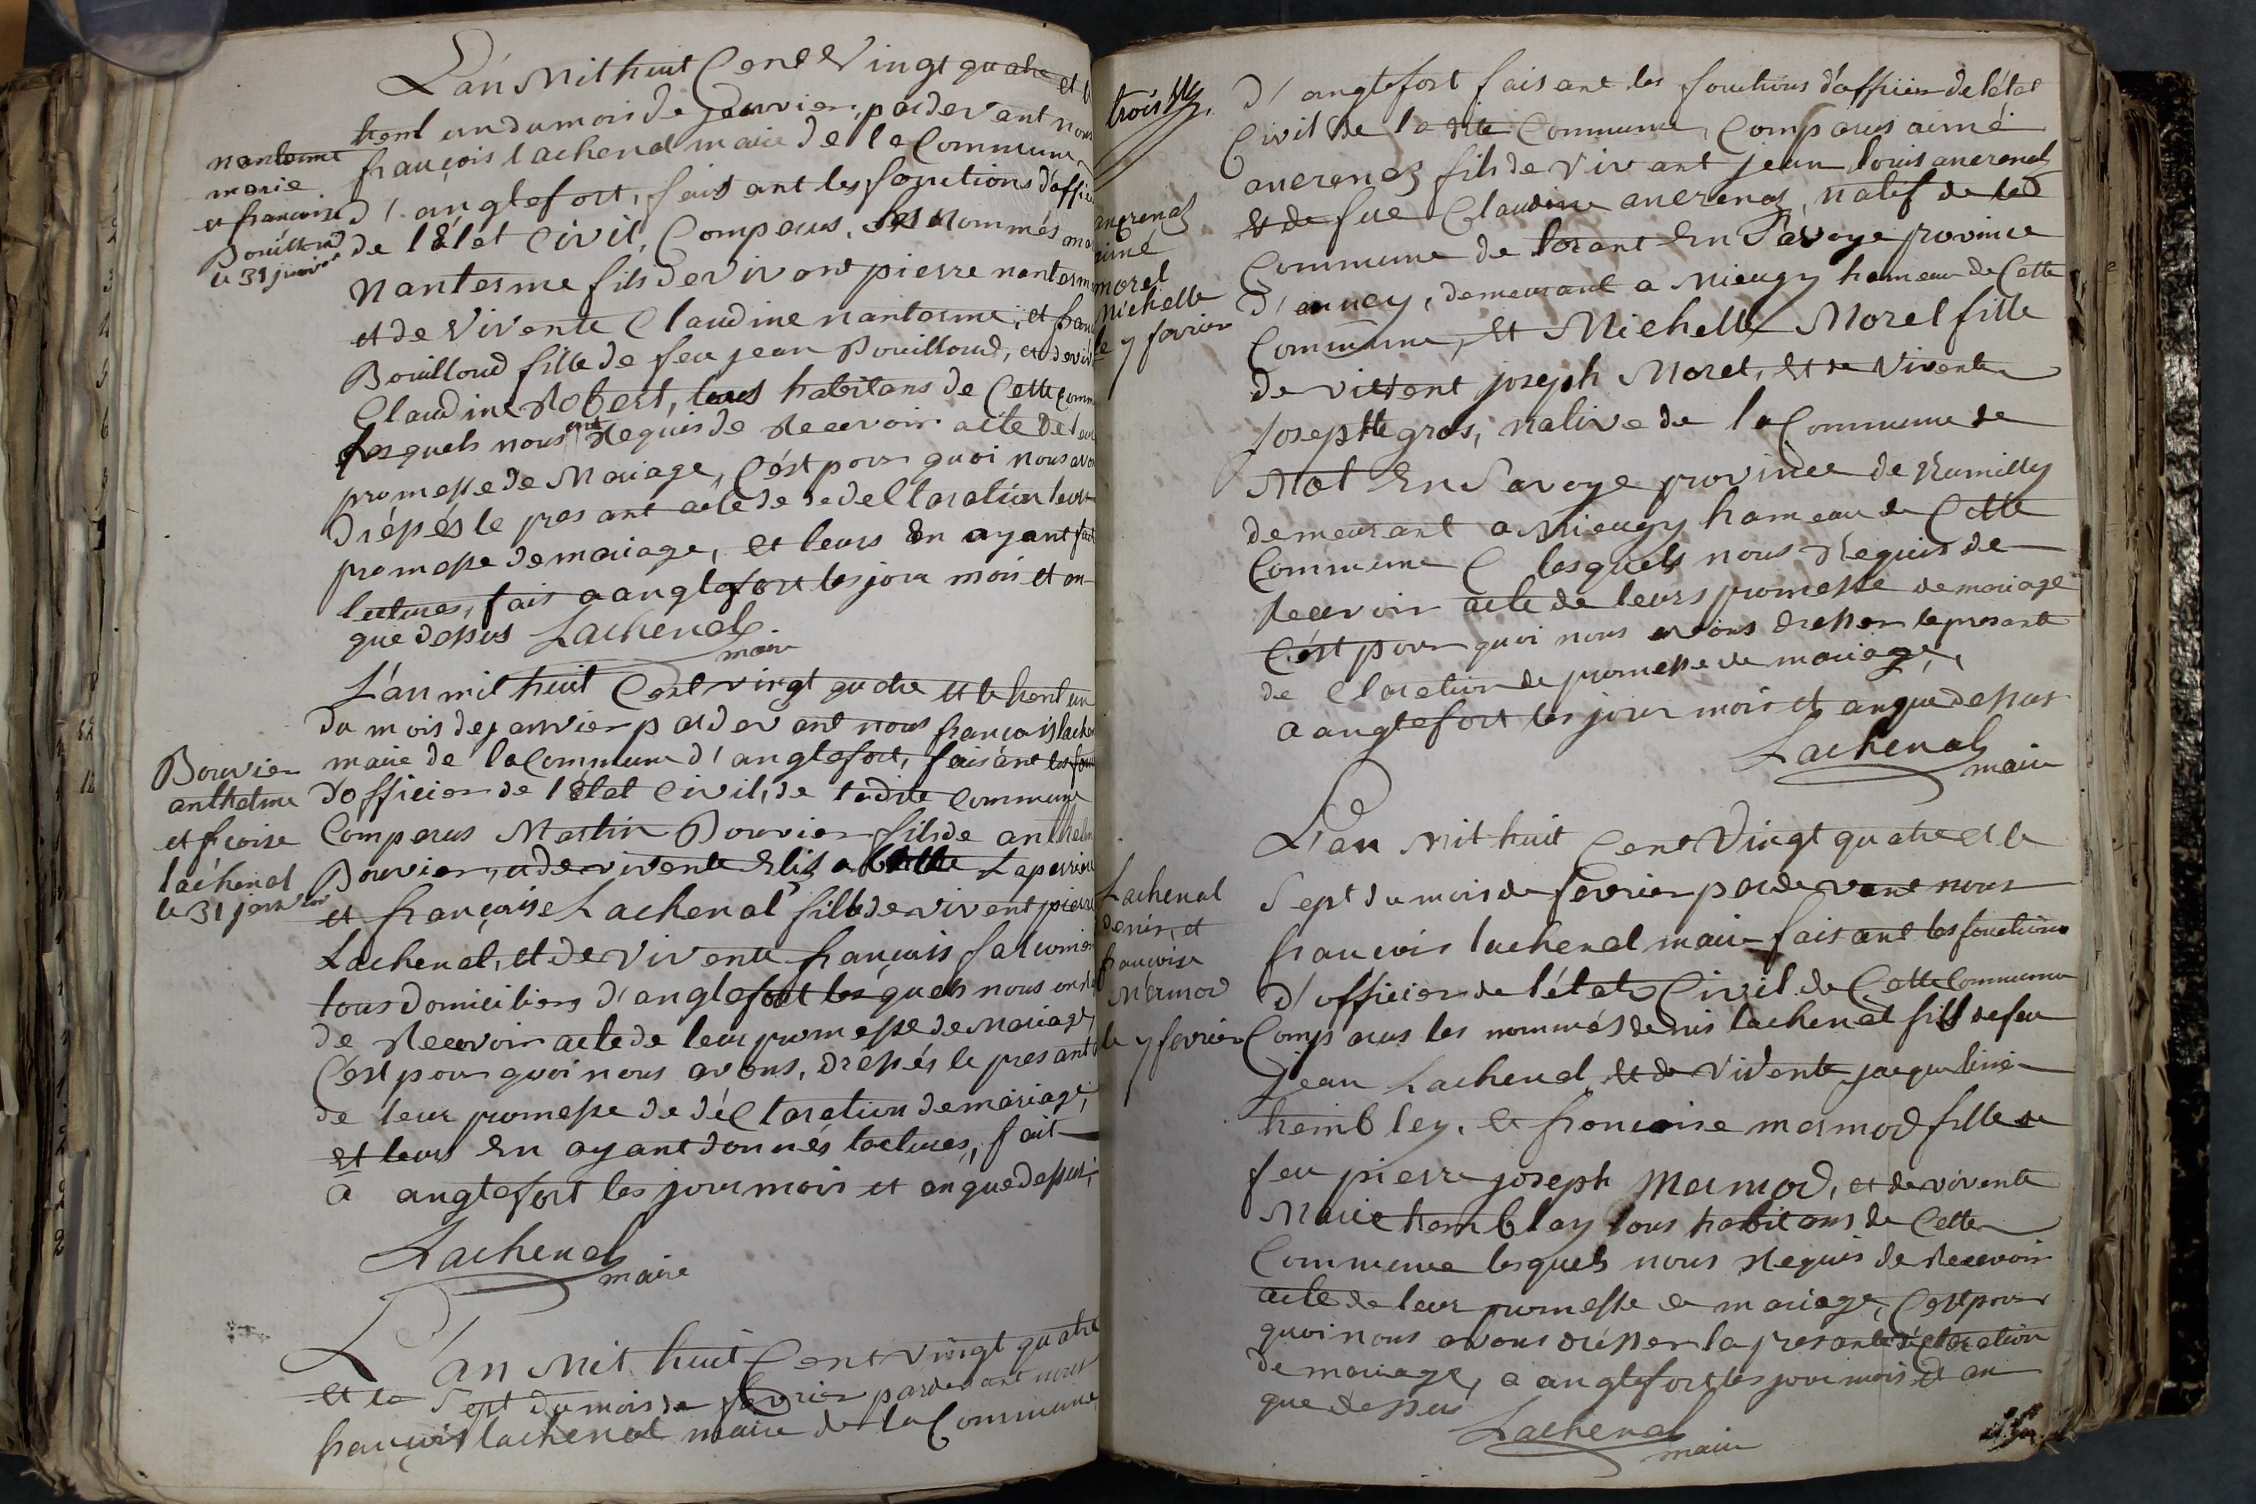 L'an mil huit Cent Vingt quatre et le
trent un du mois de janvier, pardevant nous
françois lachenal maire de la Commune
d'anglefort, faisant les fonctions d'officier
de l'état Civil, Comparus, les nommés
Nanterme fils de vivant pierre nanterme
et de Vivente Claudine nanterme, et
Bouilloud fille de feu jean Bouilloud, et de
Claudine Robert, tous habitans de Cette
lesquels nous ont Requis de Recevoir acte de leur
promesse de Mariage, C'est pour quoi nous avons
drésés le presant acte de de dellaration leurs
promesse de mariage, et leurs En ayant fait
lectures, fais a anglefort les jour mois et an
que dessus Lachenal
maire
nanterme
marie
et francoise
Bouilloud
le 31 janvier
L'an mil huit Cent vingt quatre et le trent un
du mois de janvier pardevant nous françois
maire de la Commune d'anglefort, faisant les
d'officier de l'état Civil, de ladite Commune
Comparus Martin Bouvier fils de anthelme
Bouvier, et de vivente Elizabette
et françoise Lachenal fille de vivent pierre
Lachenal, et de Vivente françois
tous domiciliers d'anglefort les quels nous
de Recevoir acte de leur promesse de Mariage,
C'est pour quoi nous avons, drésés le presant
de leur promesse de déClaration de mariage,
et leurs En ayant donnés lectures, fait
a anglefort les jour mois et an que dessus,
Lachenal
maire
Bouvier
anthelme
et fcoise
lachenal
le 31 janvier
L'an Mil huit Cent vingt quatre
et le Sept du mois de fevrier pardevant nous
françois lachenal maire de la Commune
trois
d'anglefort faisant les fonctions d'officier de l'état
Civil de la dite Commune, Comparus aimé
ancrenaz fils de Vivant jean louis ancrenaz
et de fue Claudine ancrenaz, natif de la
Commune de En Savoye province
d'annecy, demeurant a Mieugy hameau de Cette
Commune, et Michelle Morel fille
de vivent joseph Morel, et de Vivente
Josephte gros, native de la Commune de
En Savoye province de Rumilly
demeurant a Mieugy hameau de Cette
Commune lesquels nous Requis de
Recevoir acte de leurs promesse de mariage
C'est pour quoi nous avons dresser la presante
de Claration de promesse de mariage,
a anglefort les jour mois et an que dessus
Lachenal
maire
ancrenaz
aimé
morel
Michelle
le 7 fevrier
L'an Mil huit Cent Vingt quatre et le
Sept du mois de fevrier pardevant nous
françois lachenal maire faisant les fonctions
d'officier de l'état Civil de Cette Commune
Comparus les nommés denis lachenal fils de feu
Jean Lachenal, et de Vivente jacqueline
hembley, et francoise mermod fille de
feu pierre joseph Mermod, et de vivente
Marie hemblay tous habitans de Cette
Commune lesquels nous Requis de Recevoir
acte de leur promesse de mariage, C'est pour
quoi nous avons dresser la presante déClaration
de mariage, a anglefort les jour mois et an
que dessus
Lachenal
maire
Lachenal
denis, et
francoise
Mermod
le 7 fevrier